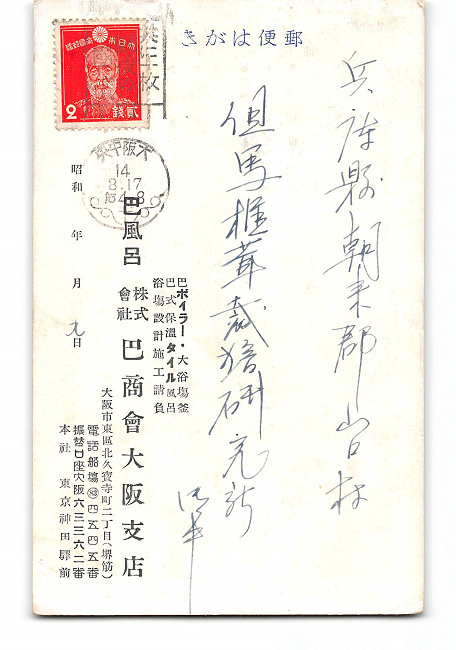 郵便はがき
大日本帝國郵便
2
貳銭
大阪中央
14
8.17
后4-8
兵庫縣朝来郡山口村
但馬椎茸栽培研究所
御中
巴ボイラー・大浴場釜
巴式保温タイル風呂
浴場設計施工請負
巴風呂
株式會社 巴商會大阪支店
大阪市東區北久寶寺町二丁目(堺筋)
電話船場㊸四五四五番
振替口座大阪六三三六二番
本社 東京神田驛前
昭和 年 月 九日